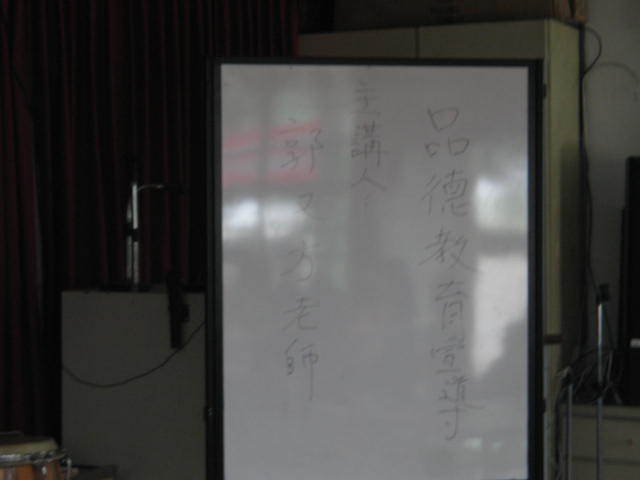 品德教育宣導
主講人:
郭又方老師